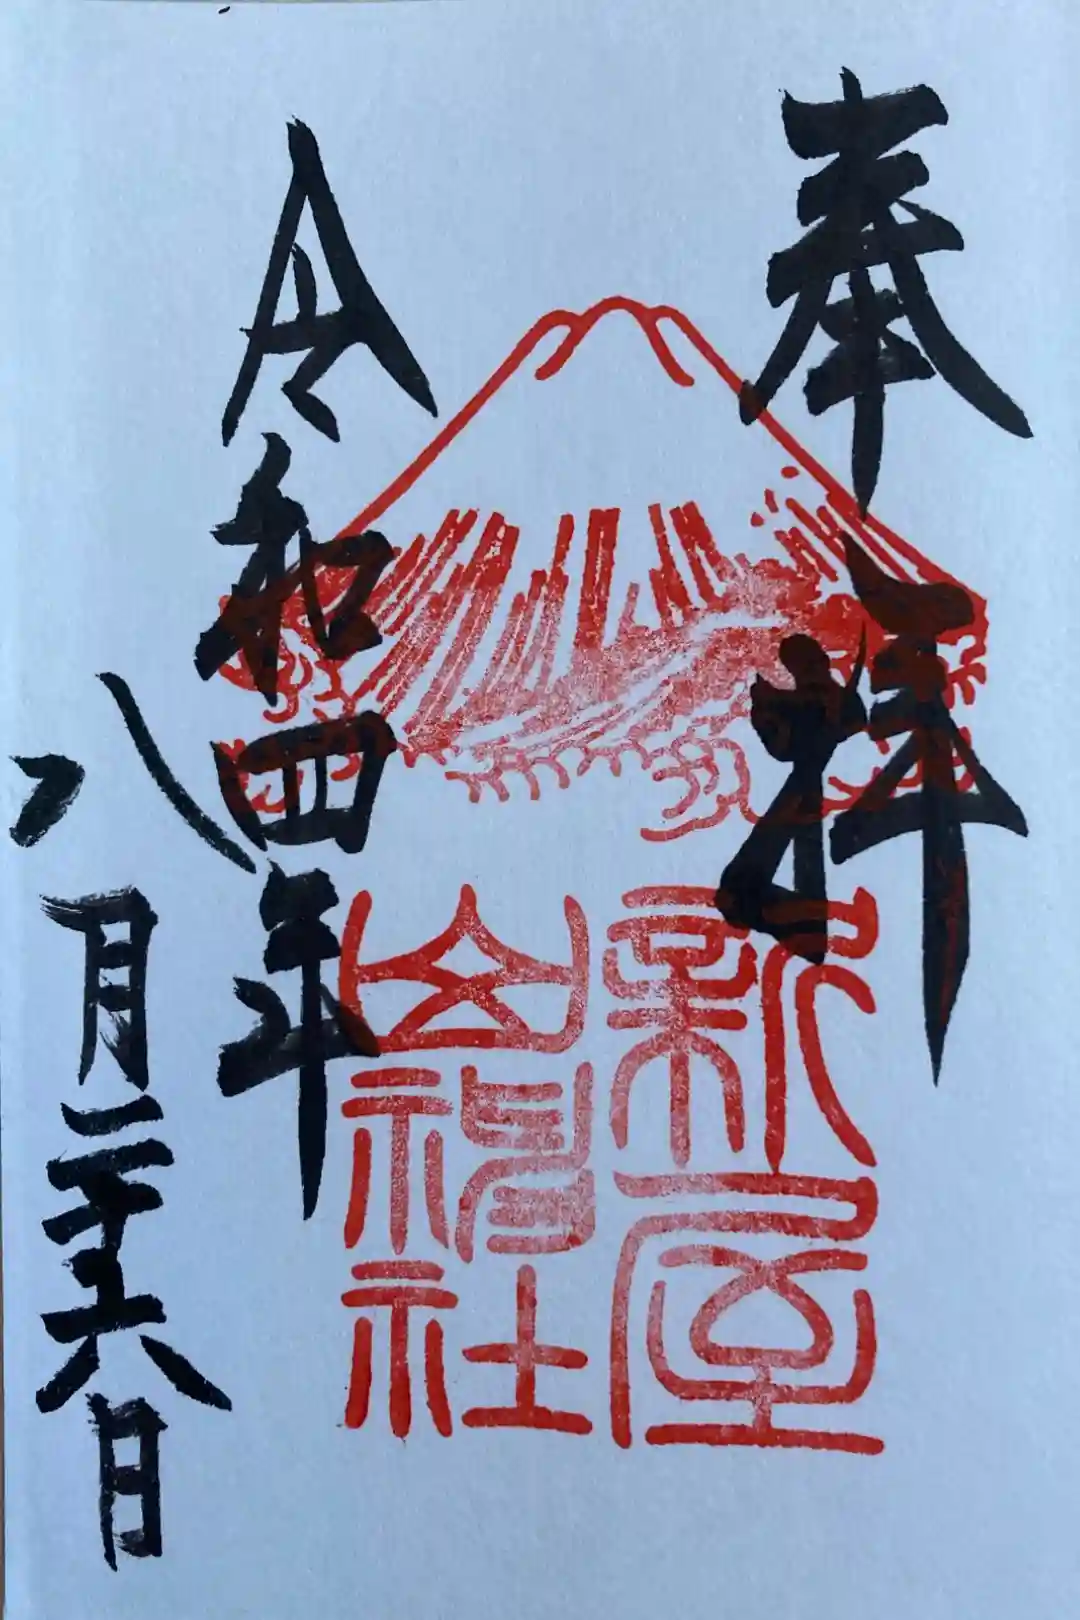 奉拝
新屋
山神社
令和四年
八月二十六日